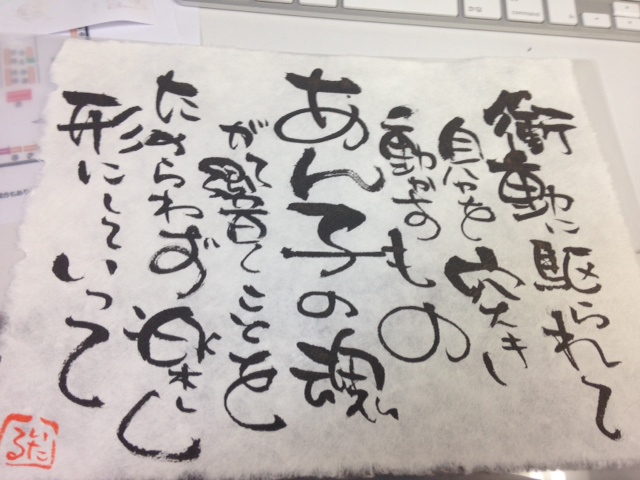 衝動に駆られて
自分を突き
動かすもの
あん子の魂
が響くことを
ためらわず楽し
形にしていって